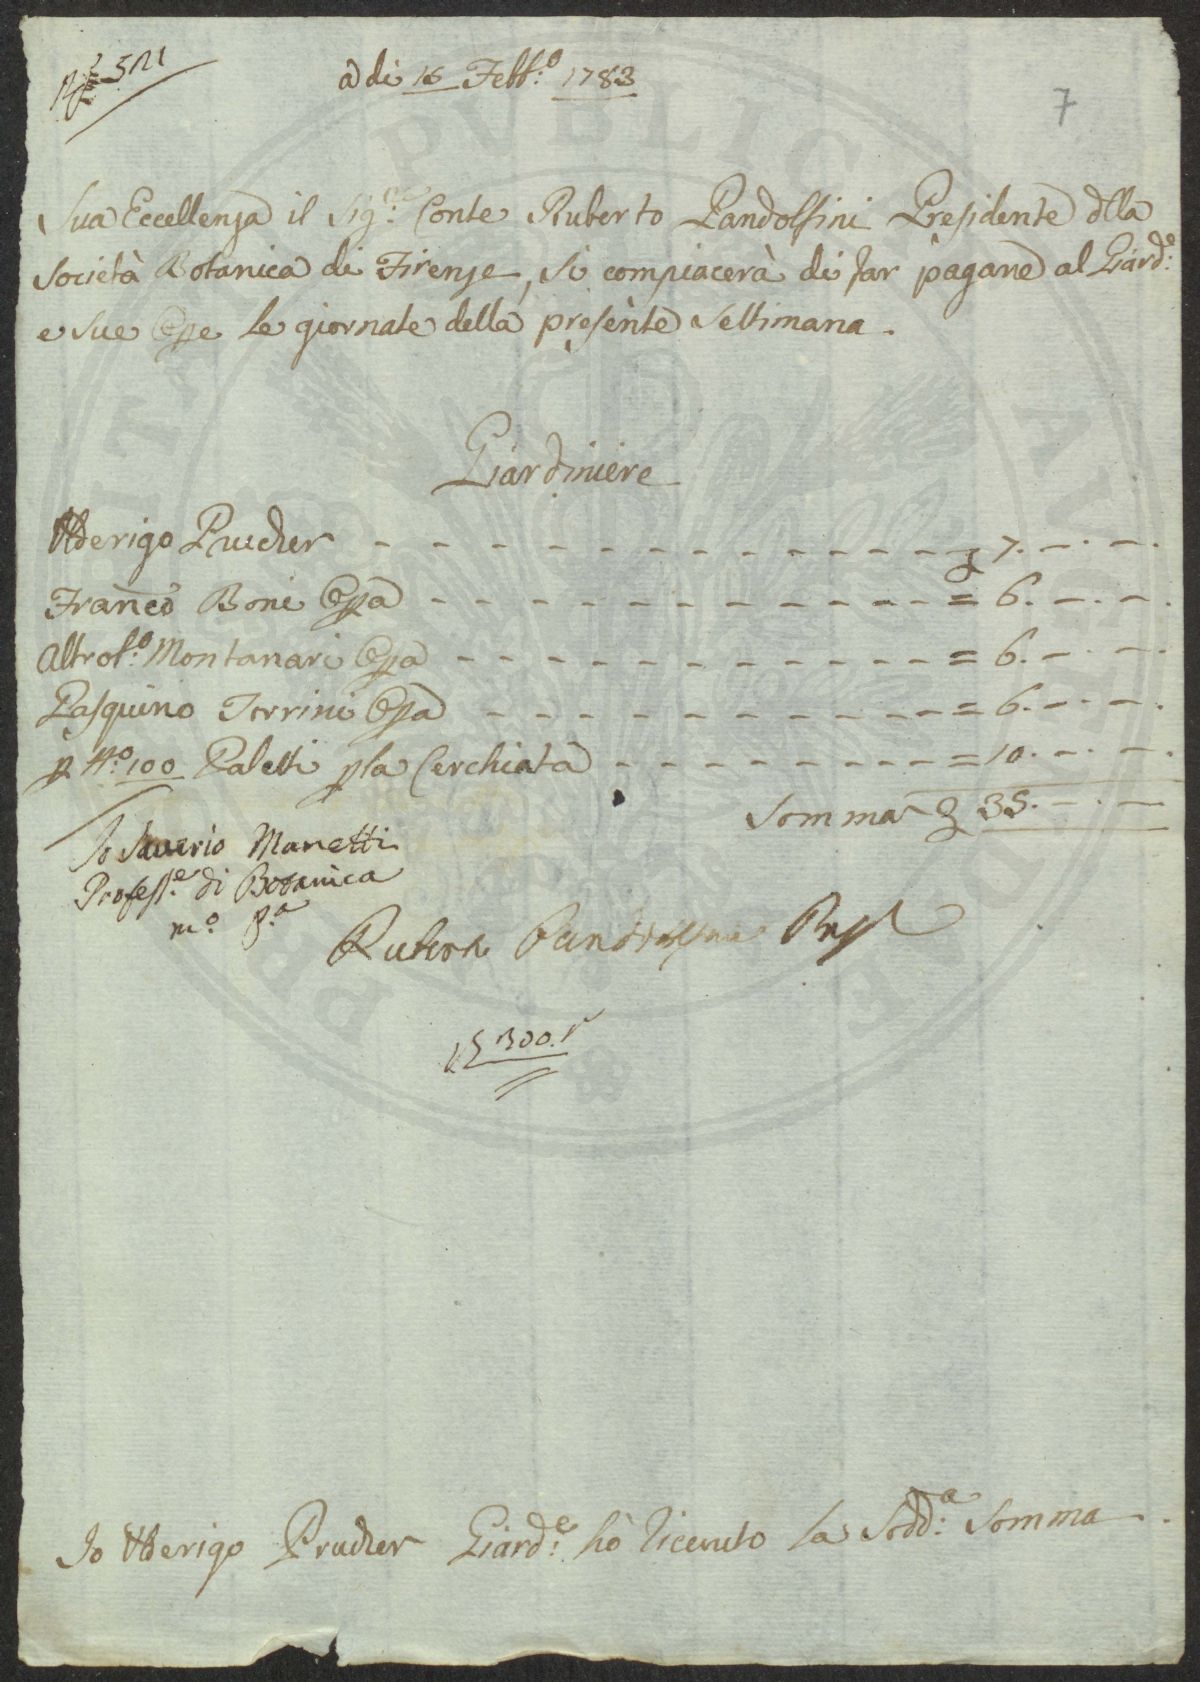 à di 16 Febb:º 1783
7
Sua Eccellenza il Sig:re Conte Ruberto Pandolfini Presidente dlla
Società Botanica di Firenze, si compiacerà di far pagare al Giard:e
e sue Ope le giornate della presente Settimana.
Giardiniere
Arrigo Prucker 7.
Franco Boni Opa = 6.
Montanari Opa = 6.
Pasquino Terrini Opa = 6.
p Nº 100 Paletti p la Cerchiata = 10.
Somma 35.
Io Saverio Manetti
Profess:e di Botanica
m:º p:ª
Ruberto Pandolfini
300.
Io Prucker Giard:e hò ricevuto la Sodd:ª Somma
PVBLIC